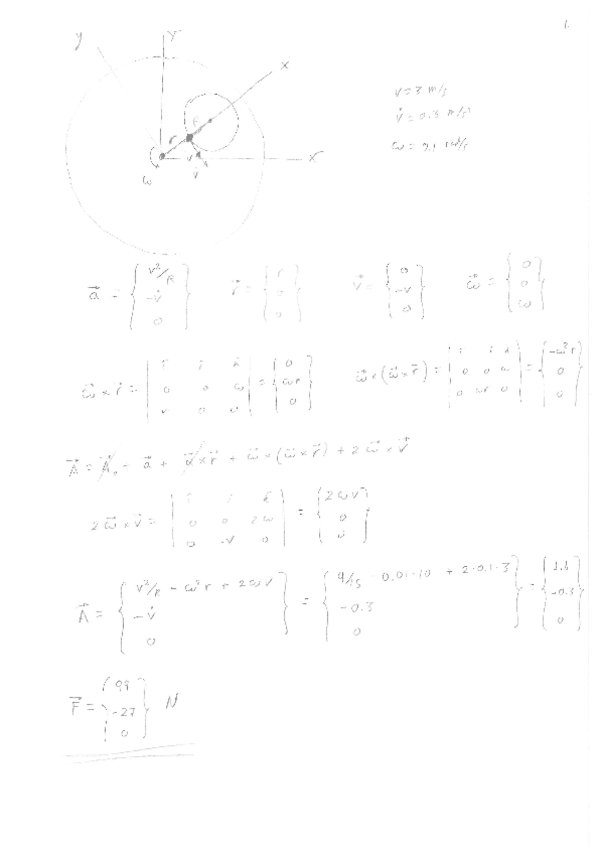 y Y
x
v=3 m/s
v̇=0.3 m/s²
r
X
v
ω
ω=0.1 rad/s
a⃗ = { v²/R, -v̇, 0 } r⃗ = { r, 0, 0 } v⃗ = { 0, -v, 0 } ω⃗ = { 0, 0, ω }
ω⃗×r⃗ = | i j k; 0 0 ω; r 0 0 | = { 0, ωr, 0 } ω⃗×(ω⃗×r⃗) = | i j k; 0 0 ω; 0 ωr 0 | = { -ω²r, 0, 0 }
A⃗ = A⃗₀ + a⃗ + α⃗×r⃗ + ω⃗×(ω⃗×r⃗) + 2ω⃗×v⃗
2ω⃗×v⃗ = | i j k; 0 0 2ω; 0 -v 0 | = { 2ωv, 0, 0 }
A⃗ = { v²/R - ω²r + 2ωv, -v̇, 0 } = { 9/15 - 0.01·10 + 2·0.1·3, -0.3, 0 } = { 1.1, -0.3, 0 }
F⃗ = { 99, -27, 0 } N